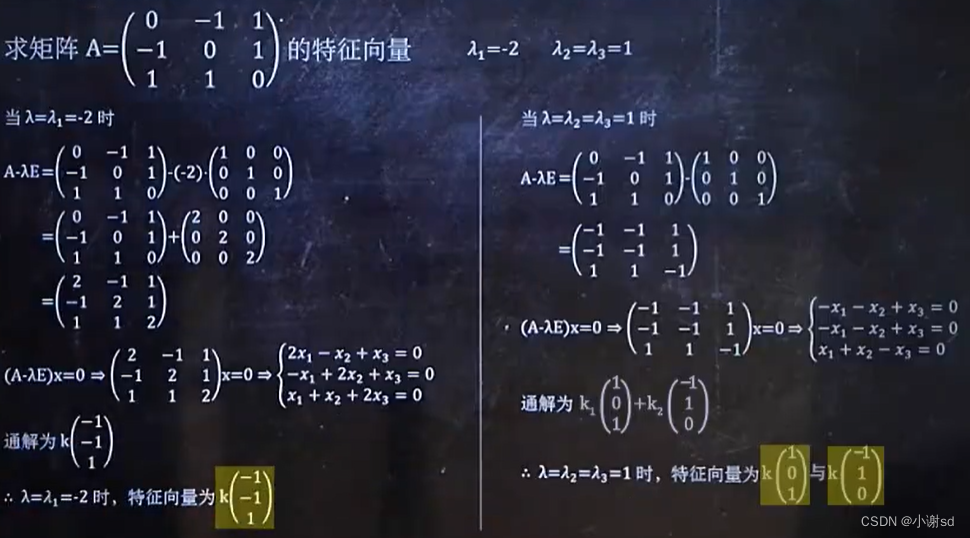 求矩阵 A=(0 -1 1; -1 0 1; 1 1 0) 的特征向量 λ₁=-2 λ₂=λ₃=1
当 λ=λ₁=-2 时
A-λE=(0 -1 1; -1 0 1; 1 1 0)-(-2)·(1 0 0; 0 1 0; 0 0 1)
=(0 -1 1; -1 0 1; 1 1 0)+(2 0 0; 0 2 0; 0 0 2)
=(2 -1 1; -1 2 1; 1 1 2)
(A-λE)x=0 ⇒ (2 -1 1; -1 2 1; 1 1 2)x=0 ⇒ {2x₁ − x₂ + x₃ = 0; −x₁ + 2x₂ + x₃ = 0; x₁ + x₂ + 2x₃ = 0
通解为 k(−1; −1; 1)
∴ λ=λ₁=-2 时，特征向量为 k(−1; −1; 1)
当 λ=λ₂=λ₃=1 时
A-λE=(0 -1 1; -1 0 1; 1 1 0)-(1 0 0; 0 1 0; 0 0 1)
=(−1 −1 1; −1 −1 1; 1 1 −1)
(A-λE)x=0 ⇒ (−1 −1 1; −1 −1 1; 1 1 −1)x=0 ⇒ {−x₁ − x₂ + x₃ = 0; −x₁ − x₂ + x₃ = 0; x₁ + x₂ − x₃ = 0
通解为 k₁(1; 0; 1)+k₂(−1; 1; 0)
∴ λ=λ₂=λ₃=1 时，特征向量为 k(1; 0; 1)与k(−1; 1; 0)
CSDN @小谢sd